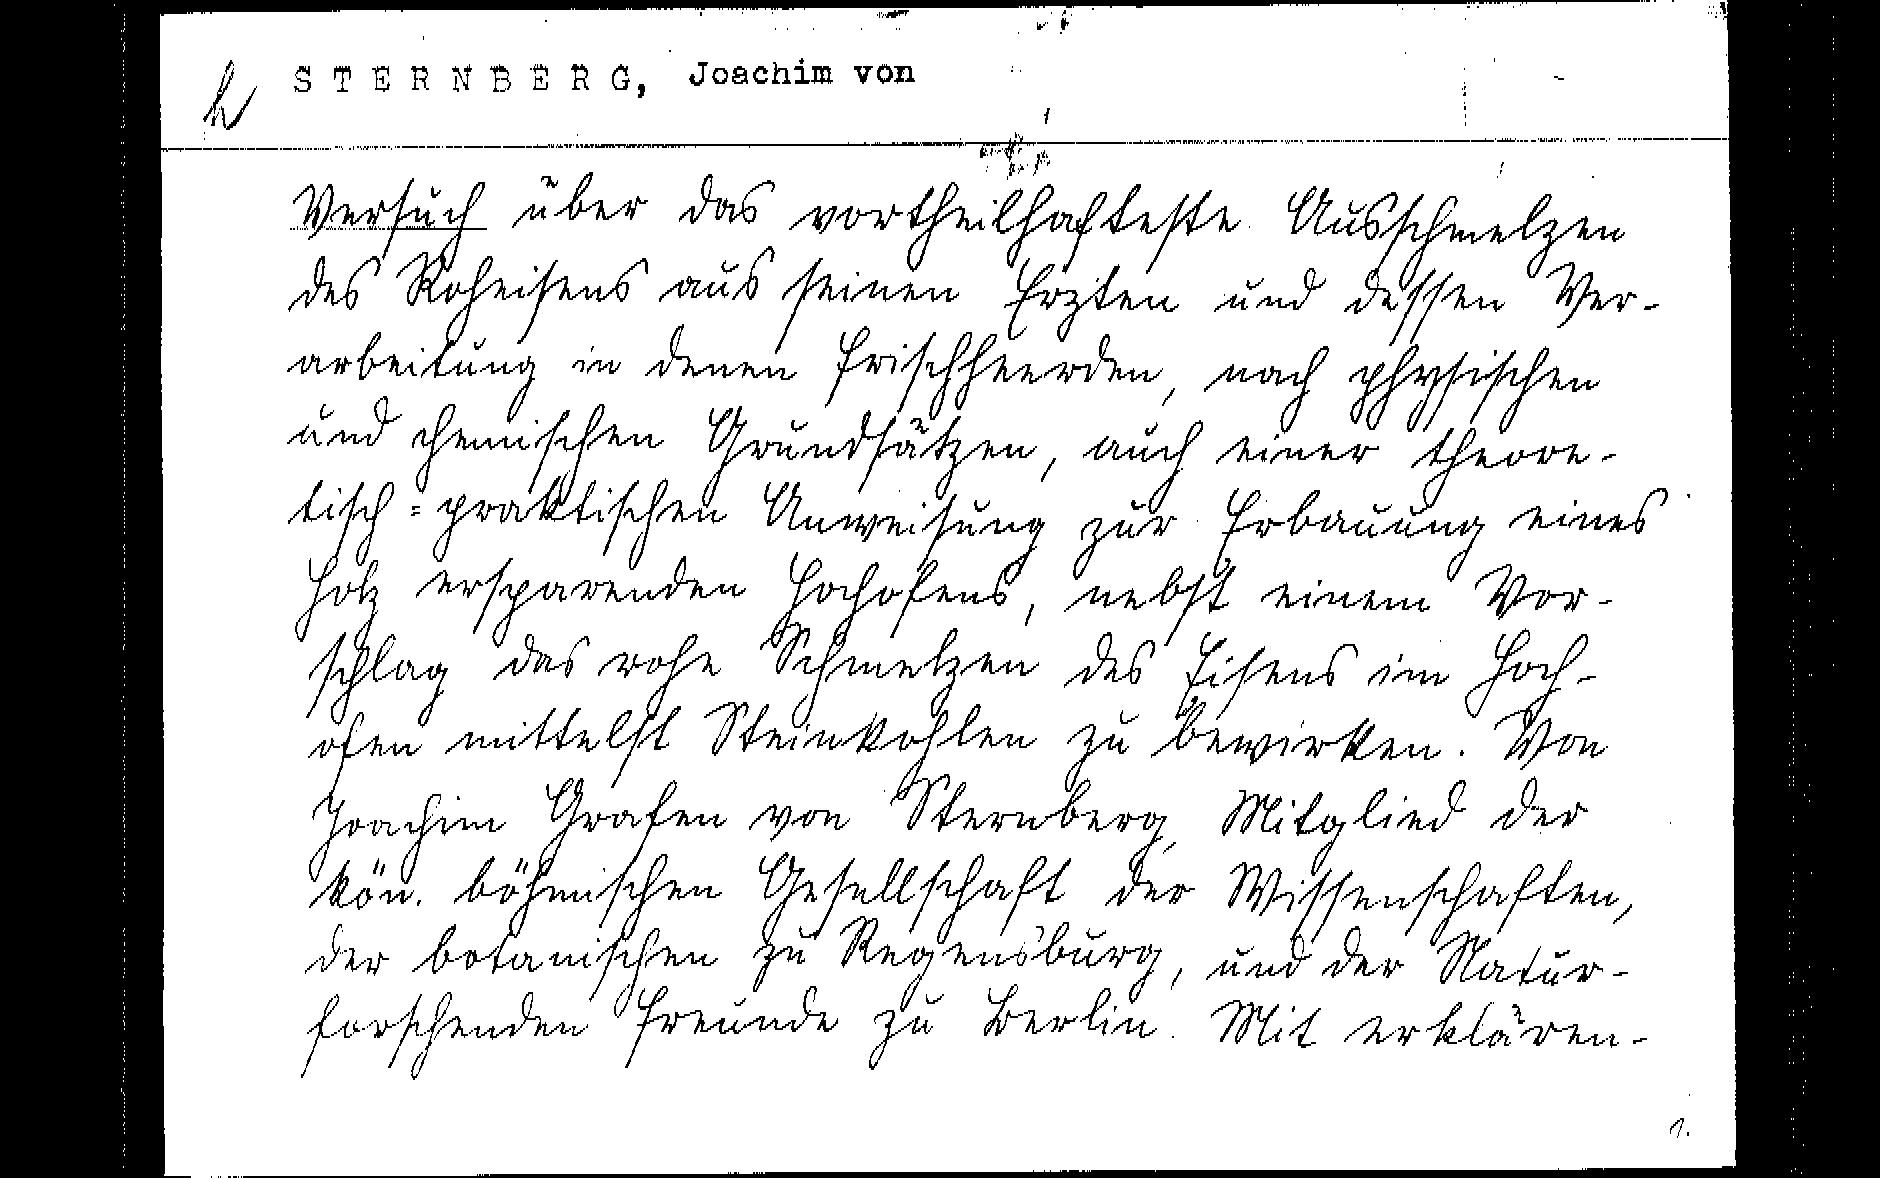 h STERNBERG, Joachim von
Versuch über das vortheilhafteste Ausschmelzen
des Roheisens aus seinen Erzten und dessen Ver-
arbeitung in denen Frischheerden, nach physischen
und chemischen Grundsätzen, auch einer theore-
tisch=praktischen Anweisung zur Erbauung eines
Holz ersparenden Hochofens, nebst einem Vor-
schlag das rohe Schmelzen des Eisens im Hoch-
ofen mittelst Steinkohlen zu bewirken. Von
Joachim Grafen von Sternberg, Mitglied der
kön. böhmischen Gesellschaft der Wissenschaften,
der botanischen zu Regensburg, und der Natur-
forschenden Freunde zu Berlin. Mit erklären-
1.